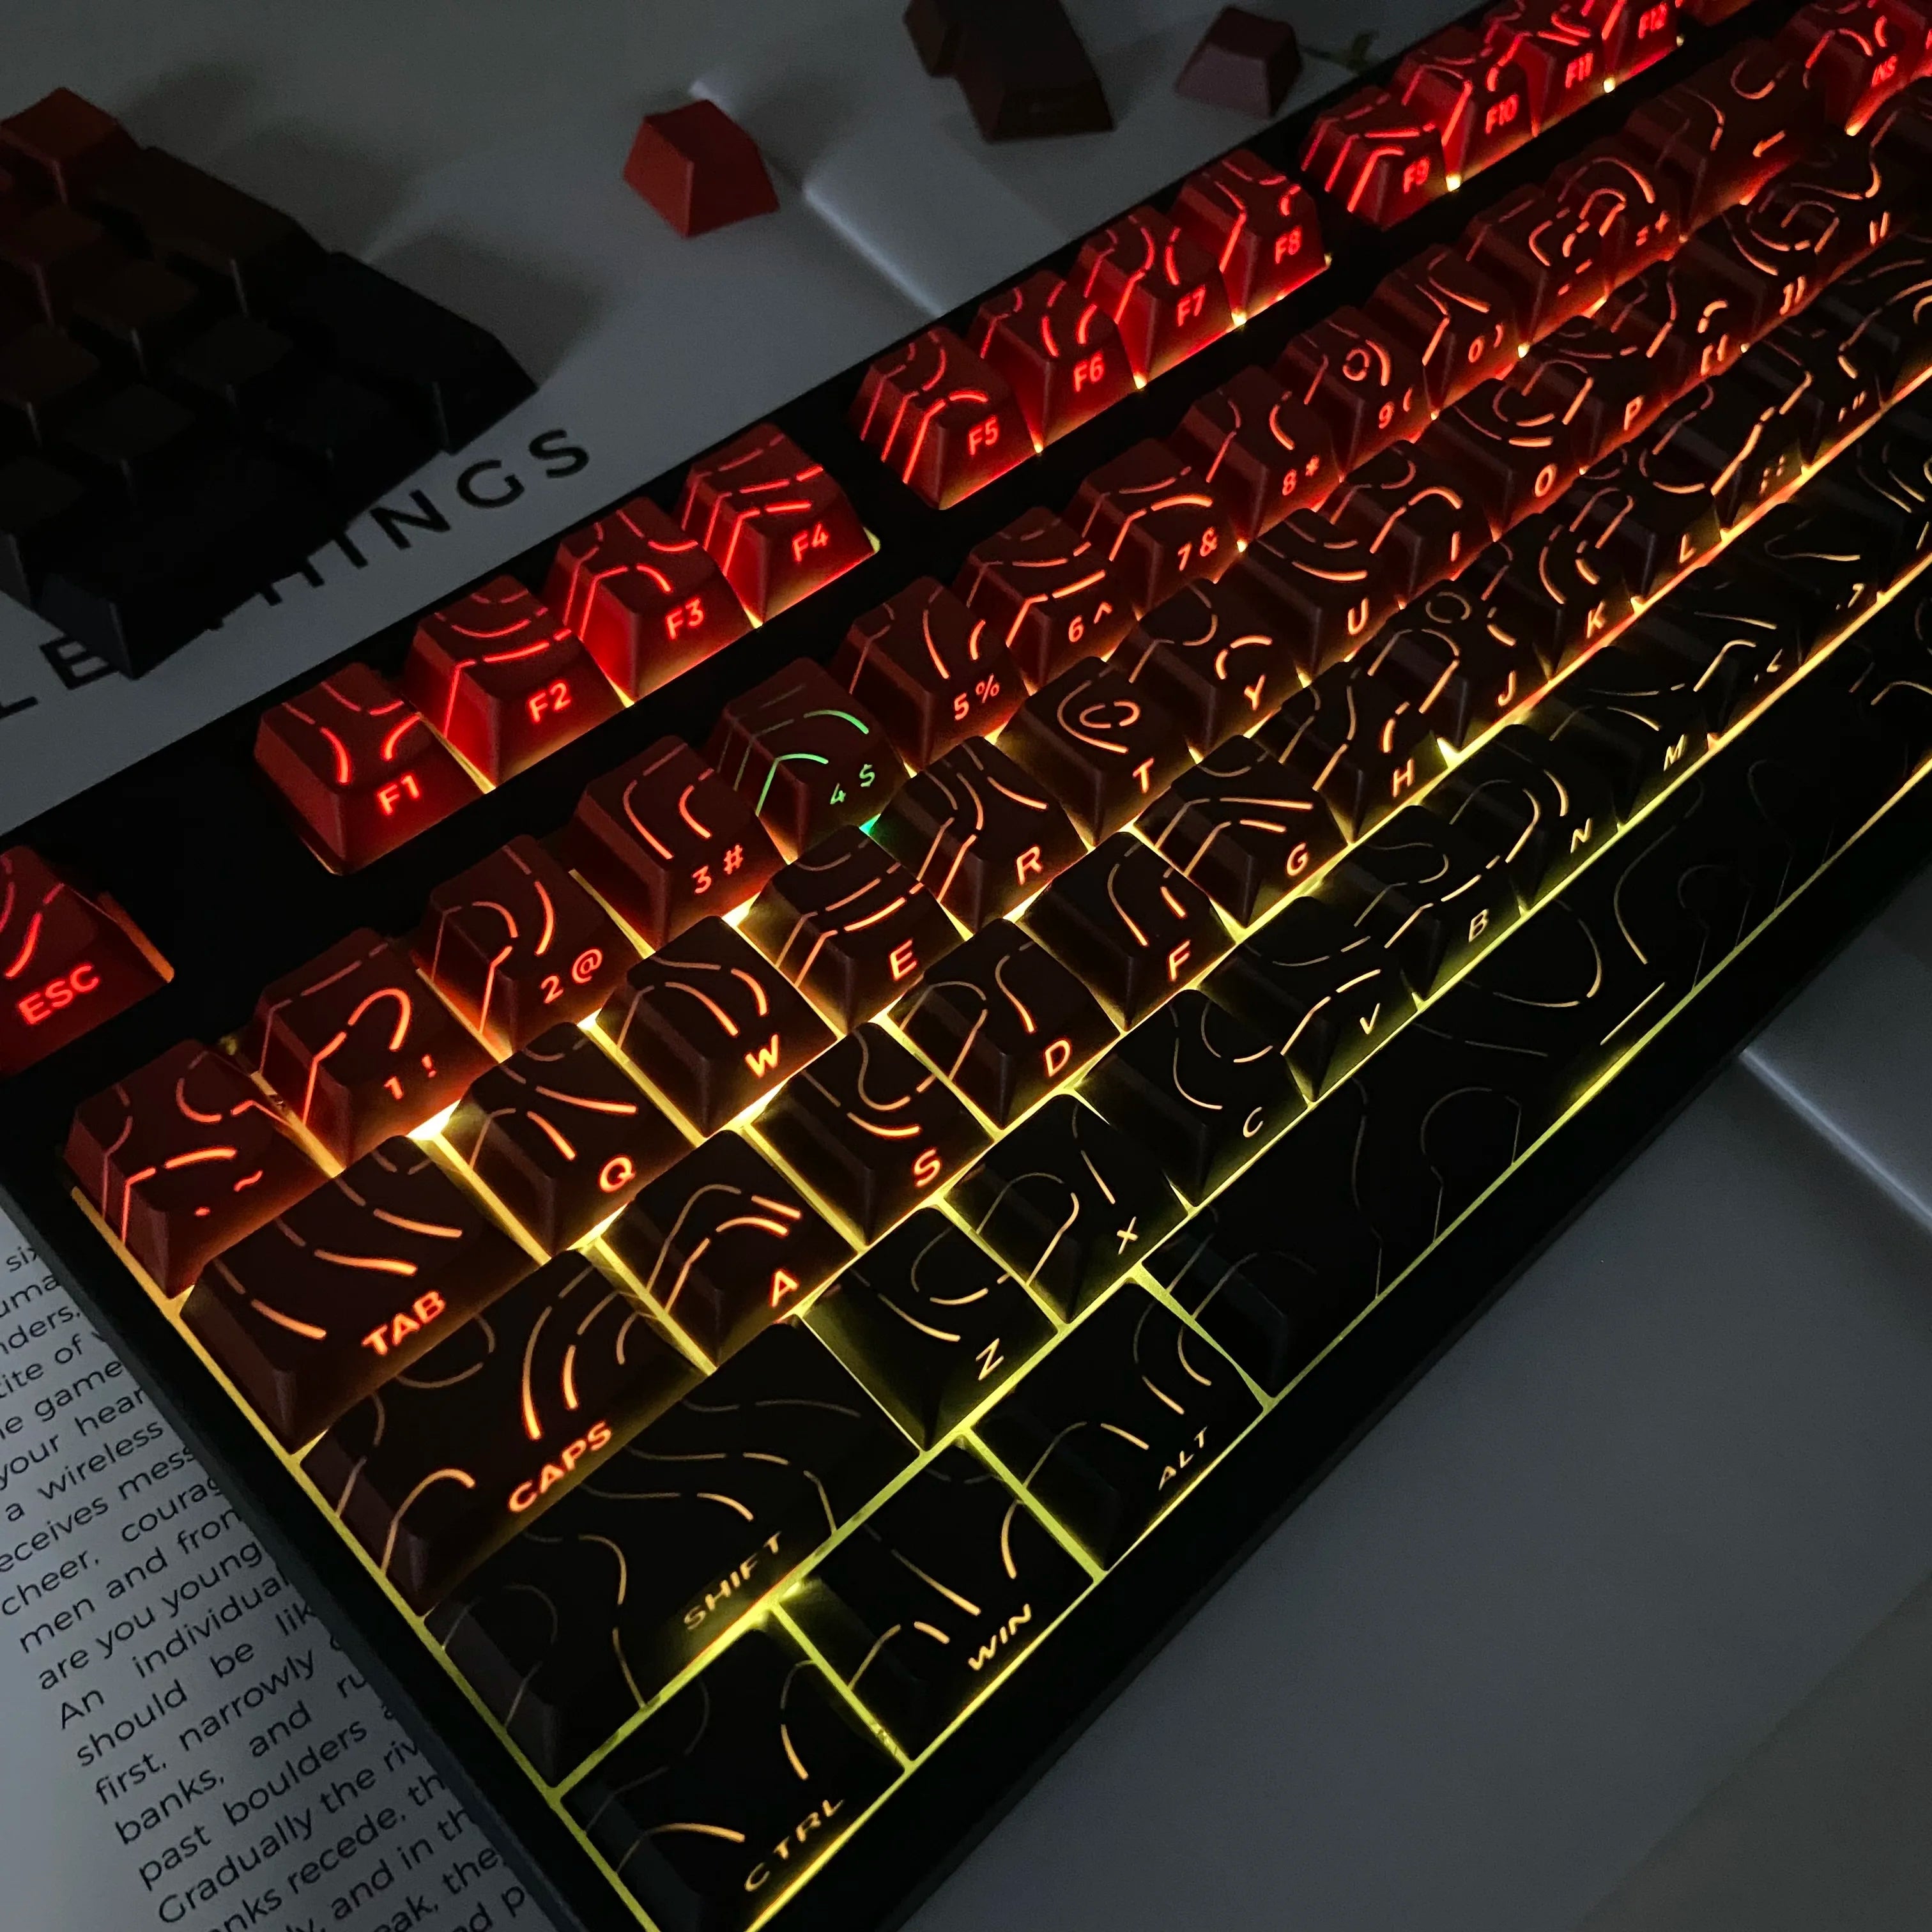 LE THINGS
F12
F11
F10
F9
F8
F7
F6
F5
F4
F3
F2
F1
ESC
` ~
1 !
2 @
3 #
4 $
5 %
6 ^
7 &
8 *
9 (
0 )
- _
= +
←
INS
TAB
Q
W
E
R
T
Y
U
I
O
P
[ {
] }
CAPS
A
S
D
F
G
H
J
K
L
; :
' "
SHIFT
Z
X
C
V
B
N
M
CTRL
WIN
ALT
ite of
game
your hear
a wireless
eceives mess
cheer, courag
men and from
are you young
An individual
should be lik
first, narrowly
banks, and ru
past boulders
Gradually the riv
nks recede, th
and in th